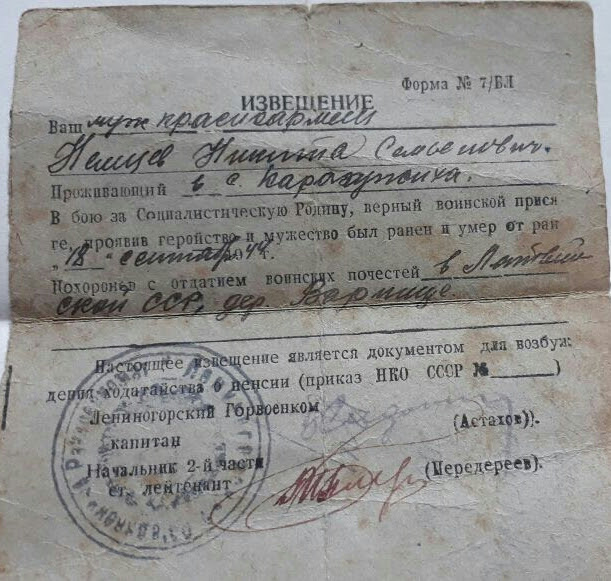 Форма № 7/БЛ
ИЗВЕЩЕНИЕ
Ваш муж красноармеец
Немцев Никита Семенович.
Проживающий в с.
В бою за Социалистическую Родину, верный воинской прися
ге, проявив геройство и мужество был ранен и умер от ран
„18“ сентября 1944 г.
Похоронен с отдатием воинских почестей в Латвий
ской ССР, дер.
Настоящее извещение является документом для возбуж
дения ходатайства о пенсии (приказ НКО СССР №______)
Лениногорский Горвоенком
капитан (Астахов)).
Начальник 2-й части (Передереев).
ст. лейтенант